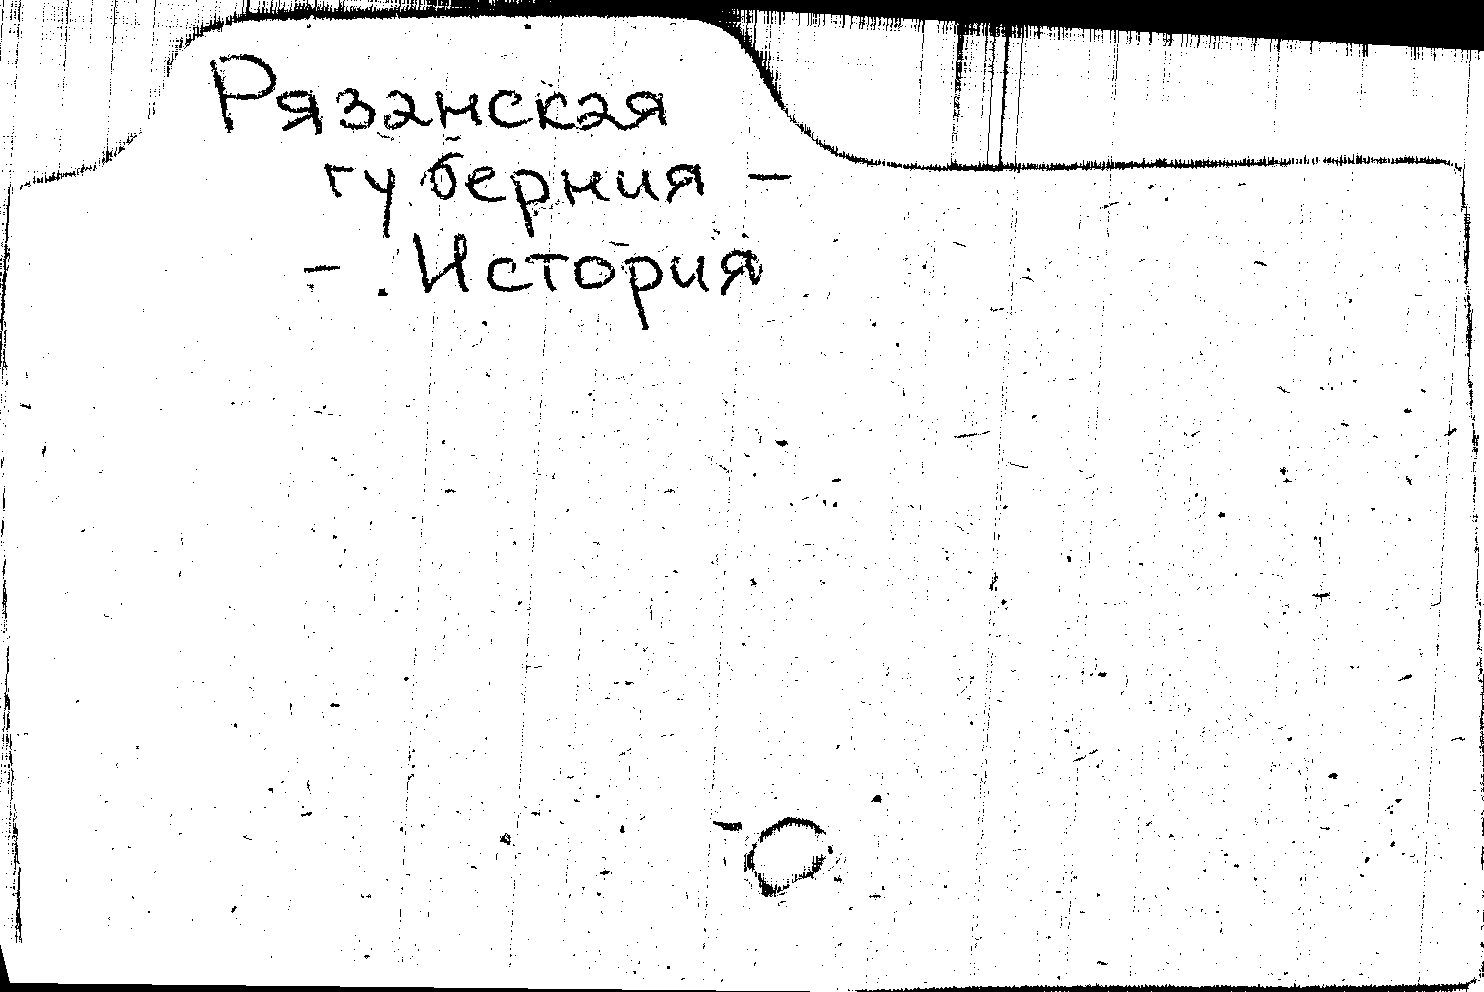 Рязанская
губерния –
– . История